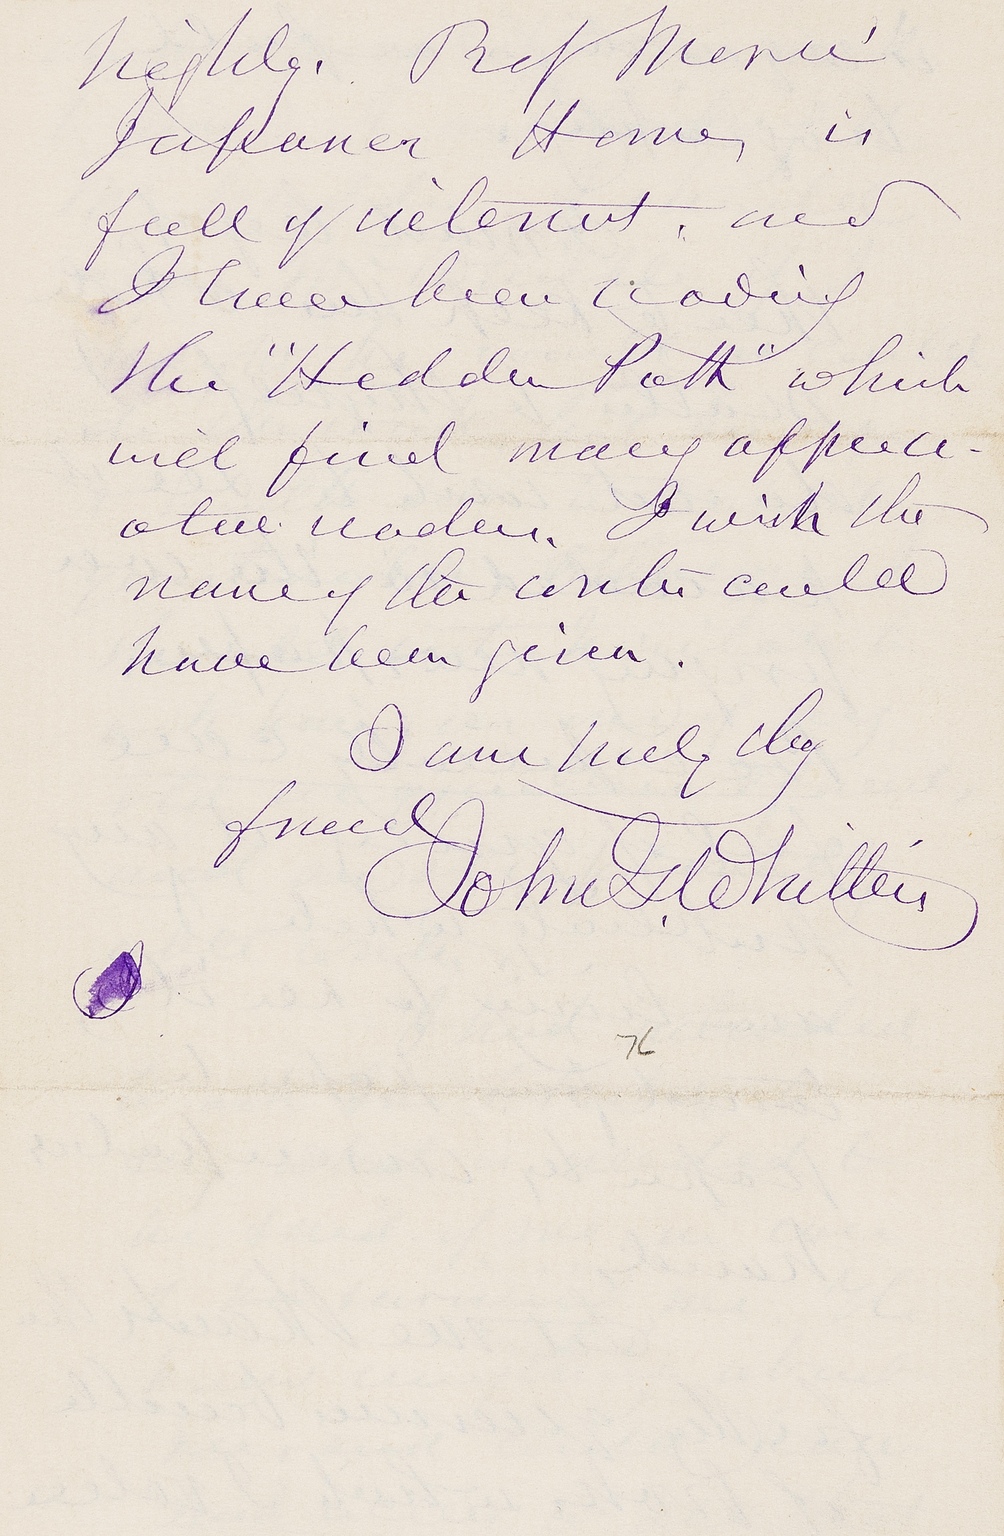 highly. Prof Morse'
Japanese Homes, is
full of interest, and
I have been reading
the "Hidden Path" which
will find many appreci-
ative readers. I wish the
name of the writer could
have been given.
I am truly thy
friend
John G. Whittier
76